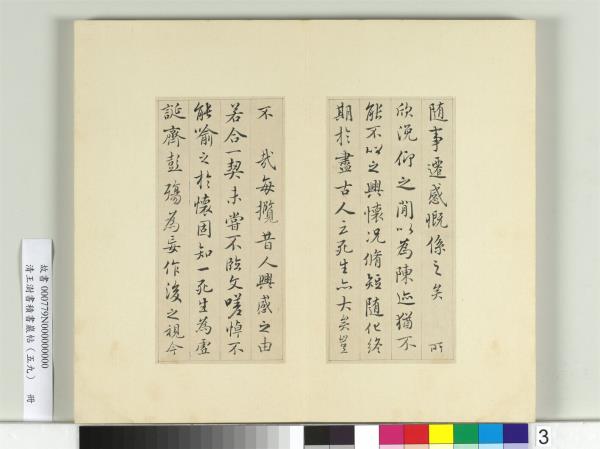 隨事遷感慨係之矣 所
欣俛仰之閒以為陳迹猶不
能不以之興懷況脩短隨化終
期於盡古人云死生亦大矣豈
不 哉每攬昔人興感之由
若合一契未嘗不臨文嗟悼不
能喻之於懷固知一死生為虛
誕齊彭殤為妄作後之視今
故書 000779N000000000
清王澍書積書巖帖（五九） 冊
3